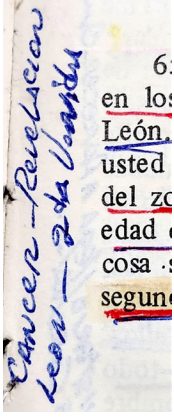 Cancer - Revelacion
Leon - 2da Venida
6
en los
León.
usted
del zo
edad
cosa s
segun